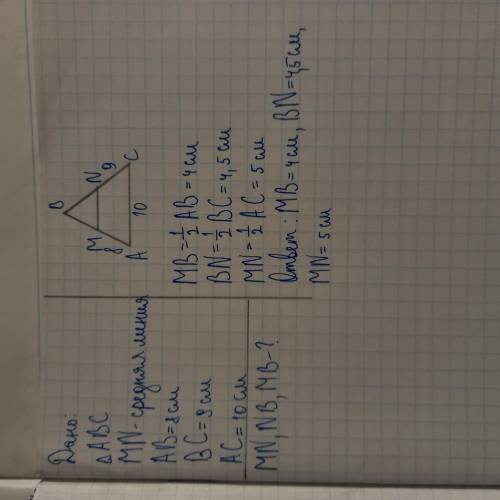 Дано:
△ABC
MN - средняя линия
AB = 8 см
BC = 9 см
AC = 10 см
MN, NB, MB - ?
B
M
N
8
9
A
10
C
MB = 1/2 AB = 4 см
BN = 1/2 BC = 4,5 см
MN = 1/2 AC = 5 см
Ответ: MB = 4 см, BN = 4,5 см,
MN = 5 см